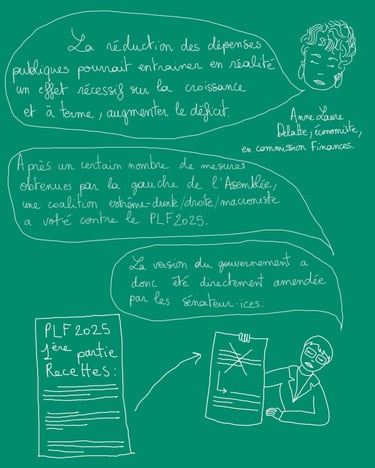 La réduction des dépenses
publiques pourrait entraîner en réalité
un effet récessif sur la croissance
et à terme, augmenter le déficit.
Anne-Laure
Delatte, économiste,
en commission Finances.
Après un certain nombre de mesures
obtenues par la gauche de l'Assemblée,
une coalition extrême-droite/droite/macroniste
a voté contre le PLF 2025.
La version du gouvernement a
donc été directement amendée
par les sénateur·ices.
PLF 2025
1ère partie
Recettes :